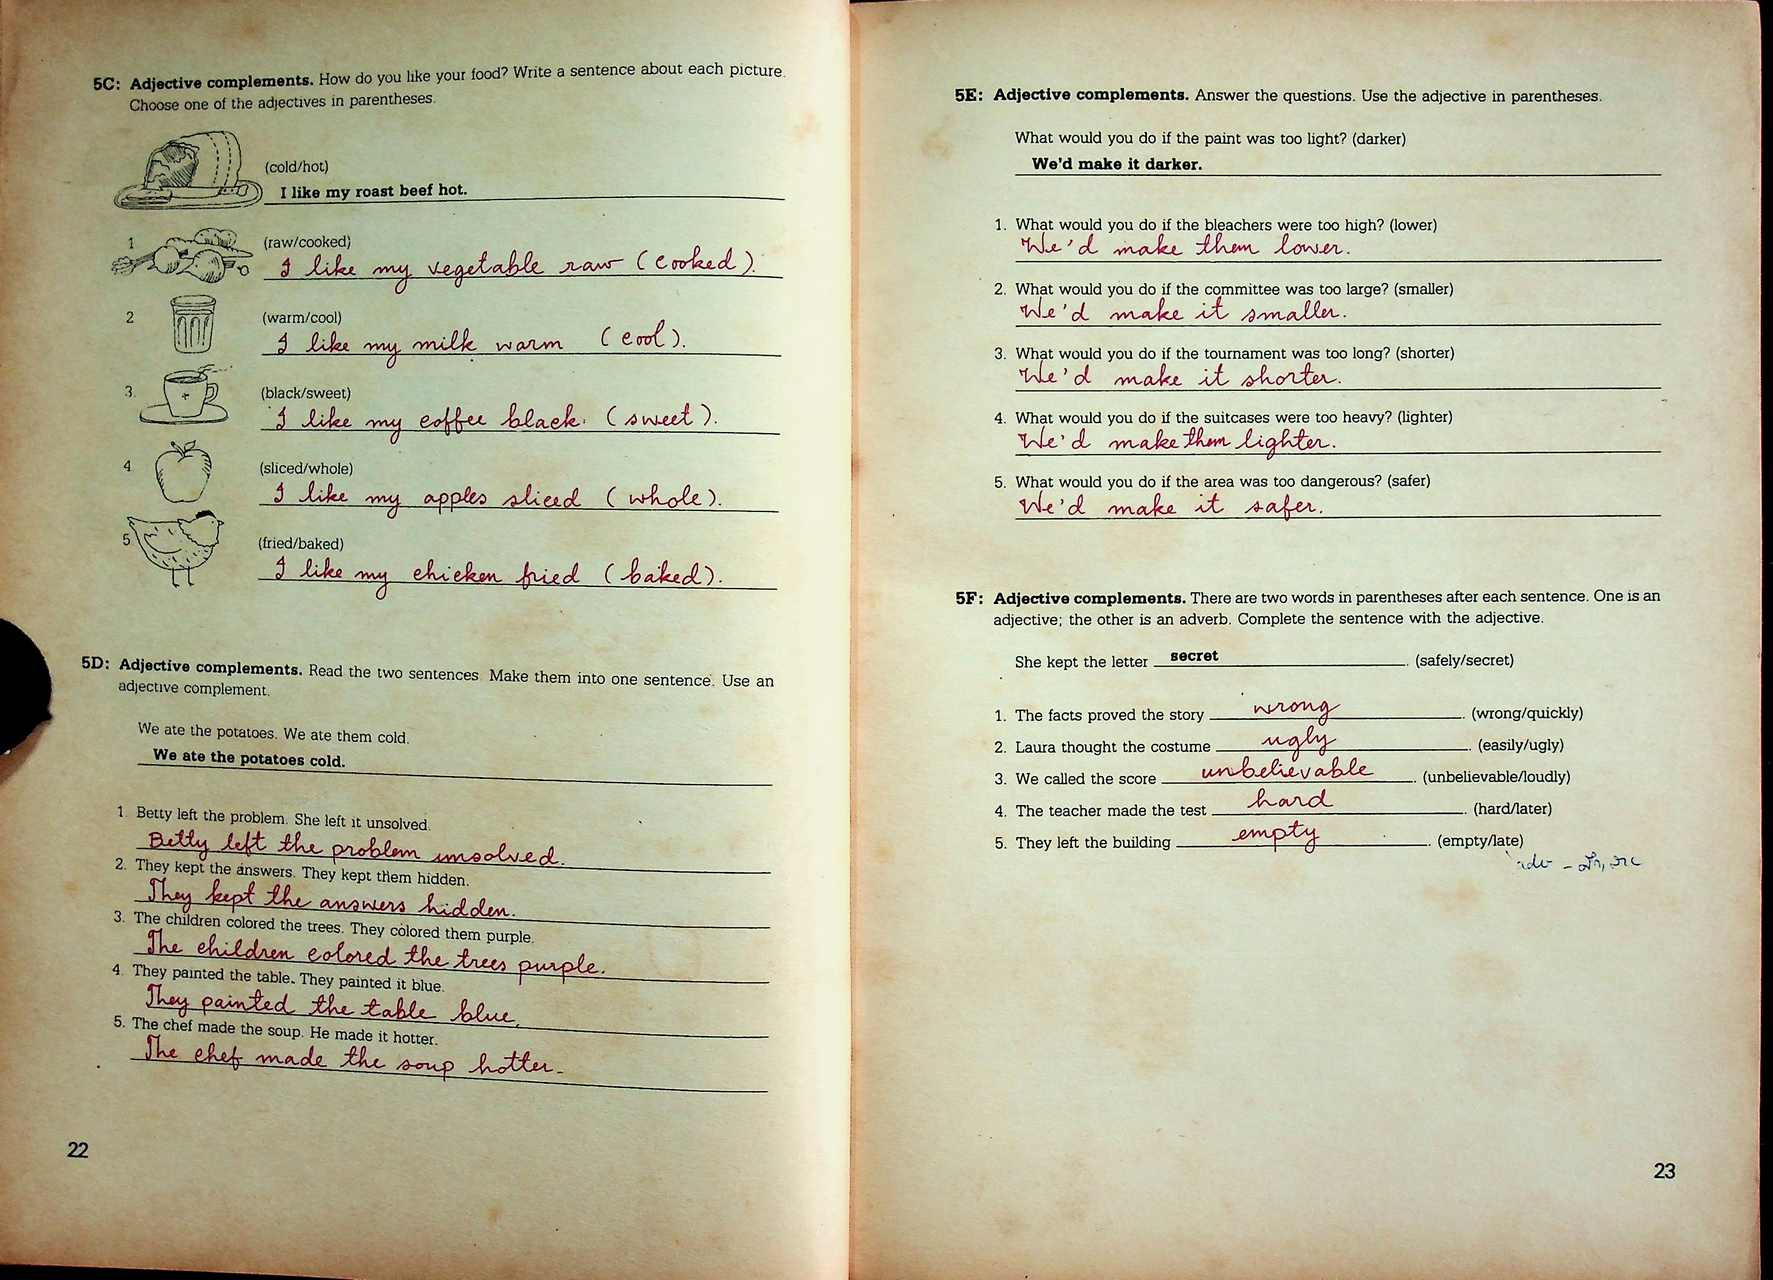 5C: Adjective complements. How do you like your food? Write a sentence about each picture.
Choose one of the adjectives in parentheses.
(cold/hot)
I like my roast beef hot.
1 (raw/cooked)
I like my vegetable raw (cooked).
2 (warm/cool)
I like my milk warm (cool).
3. (black/sweet)
I like my coffee black. (sweet).
4 (sliced/whole)
I like my apples sliced (whole).
5 (fried/baked)
I like my chicken fried (baked).
5D: Adjective complements. Read the two sentences. Make them into one sentence. Use an
adjective complement.
We ate the potatoes. We ate them cold.
We ate the potatoes cold.
1. Betty left the problem. She left it unsolved.
Betty left the problem unsolved.
2. They kept the answers. They kept them hidden.
They kept the answers hidden.
3. The children colored the trees. They colored them purple.
The children colored the trees purple.
4. They painted the table. They painted it blue.
They painted the table blue.
5. The chef made the soup. He made it hotter.
The chef made the soup hotter.
22
5E: Adjective complements. Answer the questions. Use the adjective in parentheses.
What would you do if the paint was too light? (darker)
We'd make it darker.
1. What would you do if the bleachers were too high? (lower)
We'd make them lower.
2. What would you do if the committee was too large? (smaller)
We'd make it smaller.
3. What would you do if the tournament was too long? (shorter)
We'd make it shorter.
4. What would you do if the suitcases were too heavy? (lighter)
We'd make them lighter.
5. What would you do if the area was too dangerous? (safer)
We'd make it safer.
5F: Adjective complements. There are two words in parentheses after each sentence. One is an
adjective; the other is an adverb. Complete the sentence with the adjective.
She kept the letter secret. (safely/secret)
1. The facts proved the story wrong. (wrong/quickly)
2. Laura thought the costume ugly. (easily/ugly)
3. We called the score unbelievable. (unbelievable/loudly)
4. The teacher made the test hard. (hard/later)
5. They left the building empty. (empty/late)
adv -
23